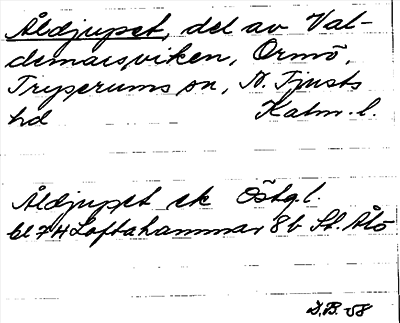 Åldjupet, del av Val-
demarsviken, Ormö,
Tryserums sn, N. Tjusts
hd Kalm. l.
Åldjupet ek Östg. l.
bl 74 Loftahammar 8b St. Ålö
D.B. 58